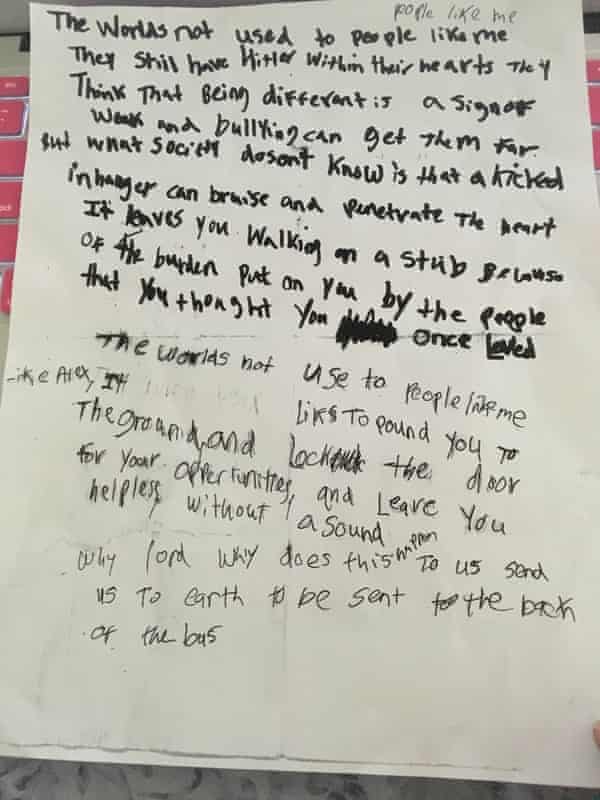 people like me
The Worlds not used to people like me
They Still have Hitler within their hearts They
Think That Being different is a sign of
weak and bullying can get them far.
But what Society dosent know is that a kicked
in hanger can bruise and penetrate The heart
It leaves you Walking on a stub Because
of the burden put on you by the people
that you thought you once Loved
The worlds not use to people like me
It likes To pound you To
The ground, and lock the door
for your opportunities, and Leave You
helpless, without a sound
Why lord why does this happen To us send
us To earth to be sent to the back
of the bus